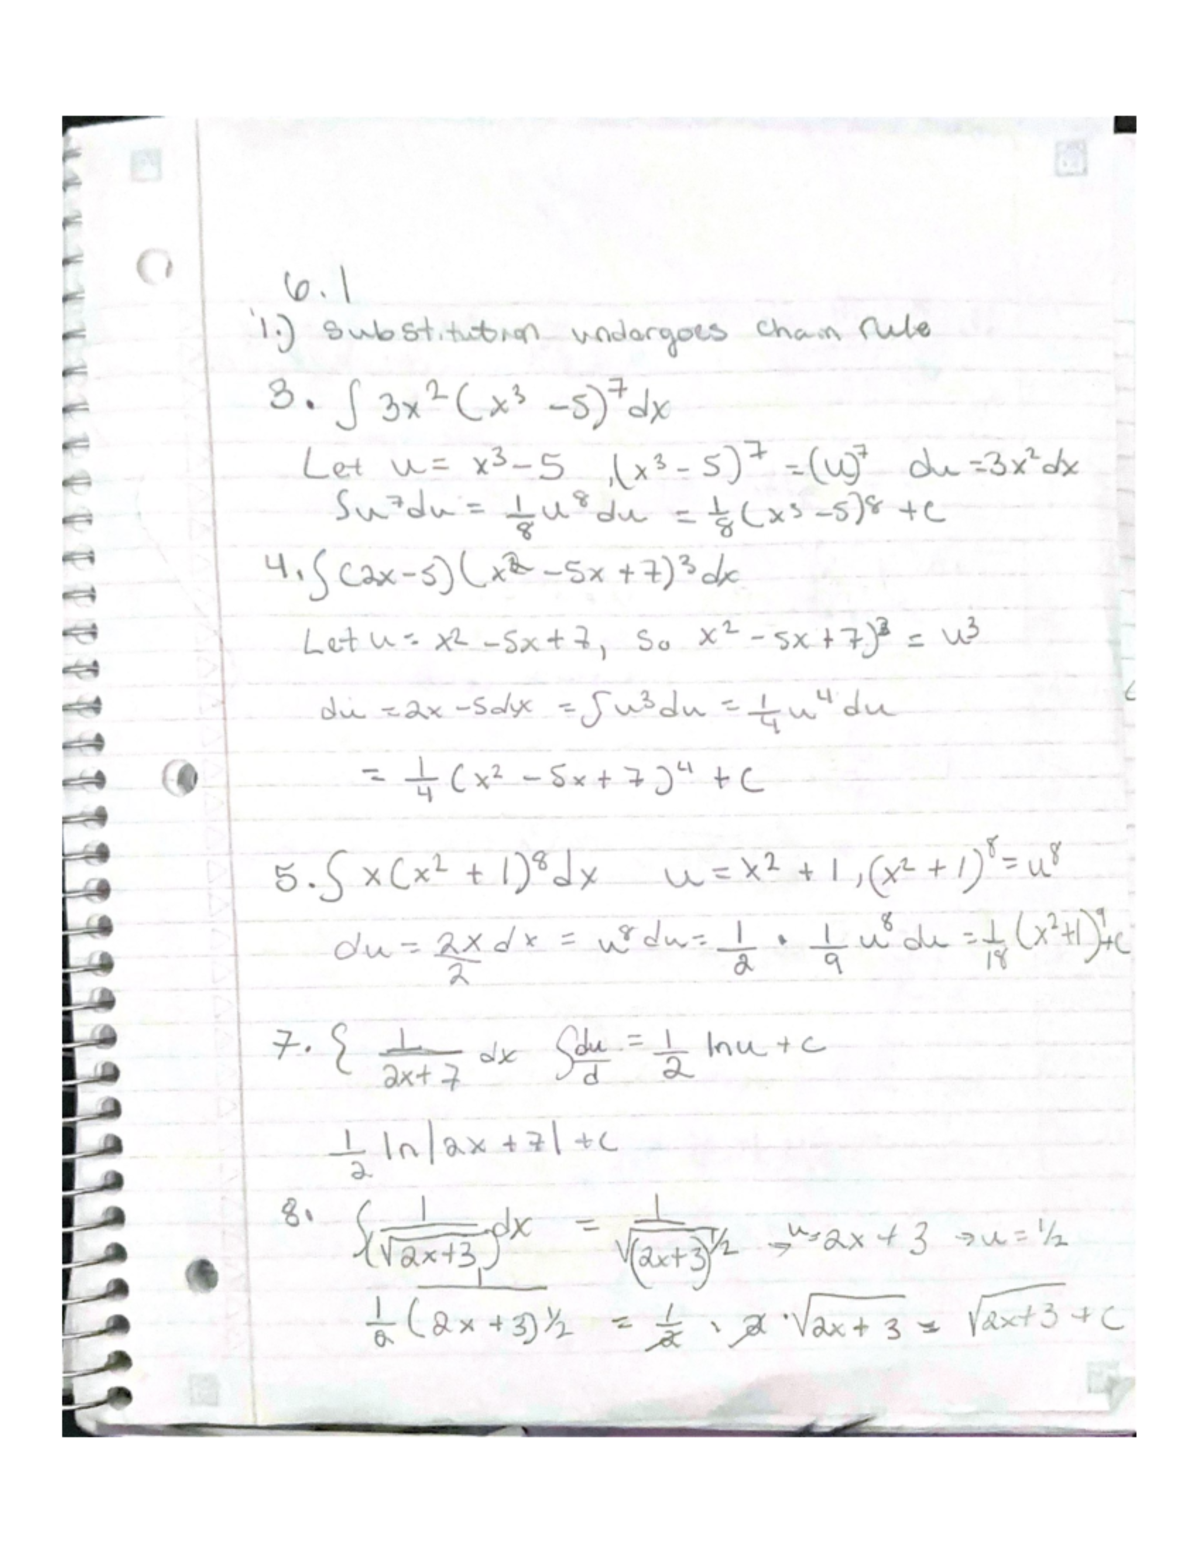 6.1
1.) substitution undergoes chain rule
3. ∫ 3x² (x³ -5)⁷ dx
Let u = x³ - 5 , (x³ - 5)⁷ = (u)⁷ du = 3x² dx
∫u⁷ du = 1/8 u⁸ du = 1/8 (x³ -5)⁸ + c
4. ∫ (2x-5)(x² -5x +7)³ dx
Let u = x² -5x+7, so x² - 5x+7)³ = u³
du = 2x -5dx = ∫u³ du = 1/4 u⁴ du
= 1/4 (x² - 5x + 7)⁴ + C
5. ∫ x(x² + 1)⁸ dx u = x² + 1, (x² + 1)⁸ = u⁸
du = 2x/2 dx = u⁸ du = 1/2 · 1/9 u⁸ du = 1/18 (x²+1)⁹ + c
7. ∫ 1/(2x+7) dx ∫ du/d = 1/2 ln u + c
1/2 ln|2x +7| + c
8. ∫ 1/(√2x+3) dx = 1/√(2x+3)^1/2 → u = 2x + 3 → u = 1/2
1/2 (2x +3) 1/2 = 1/2 · 2 · √2x + 3 = √2x+3 + C